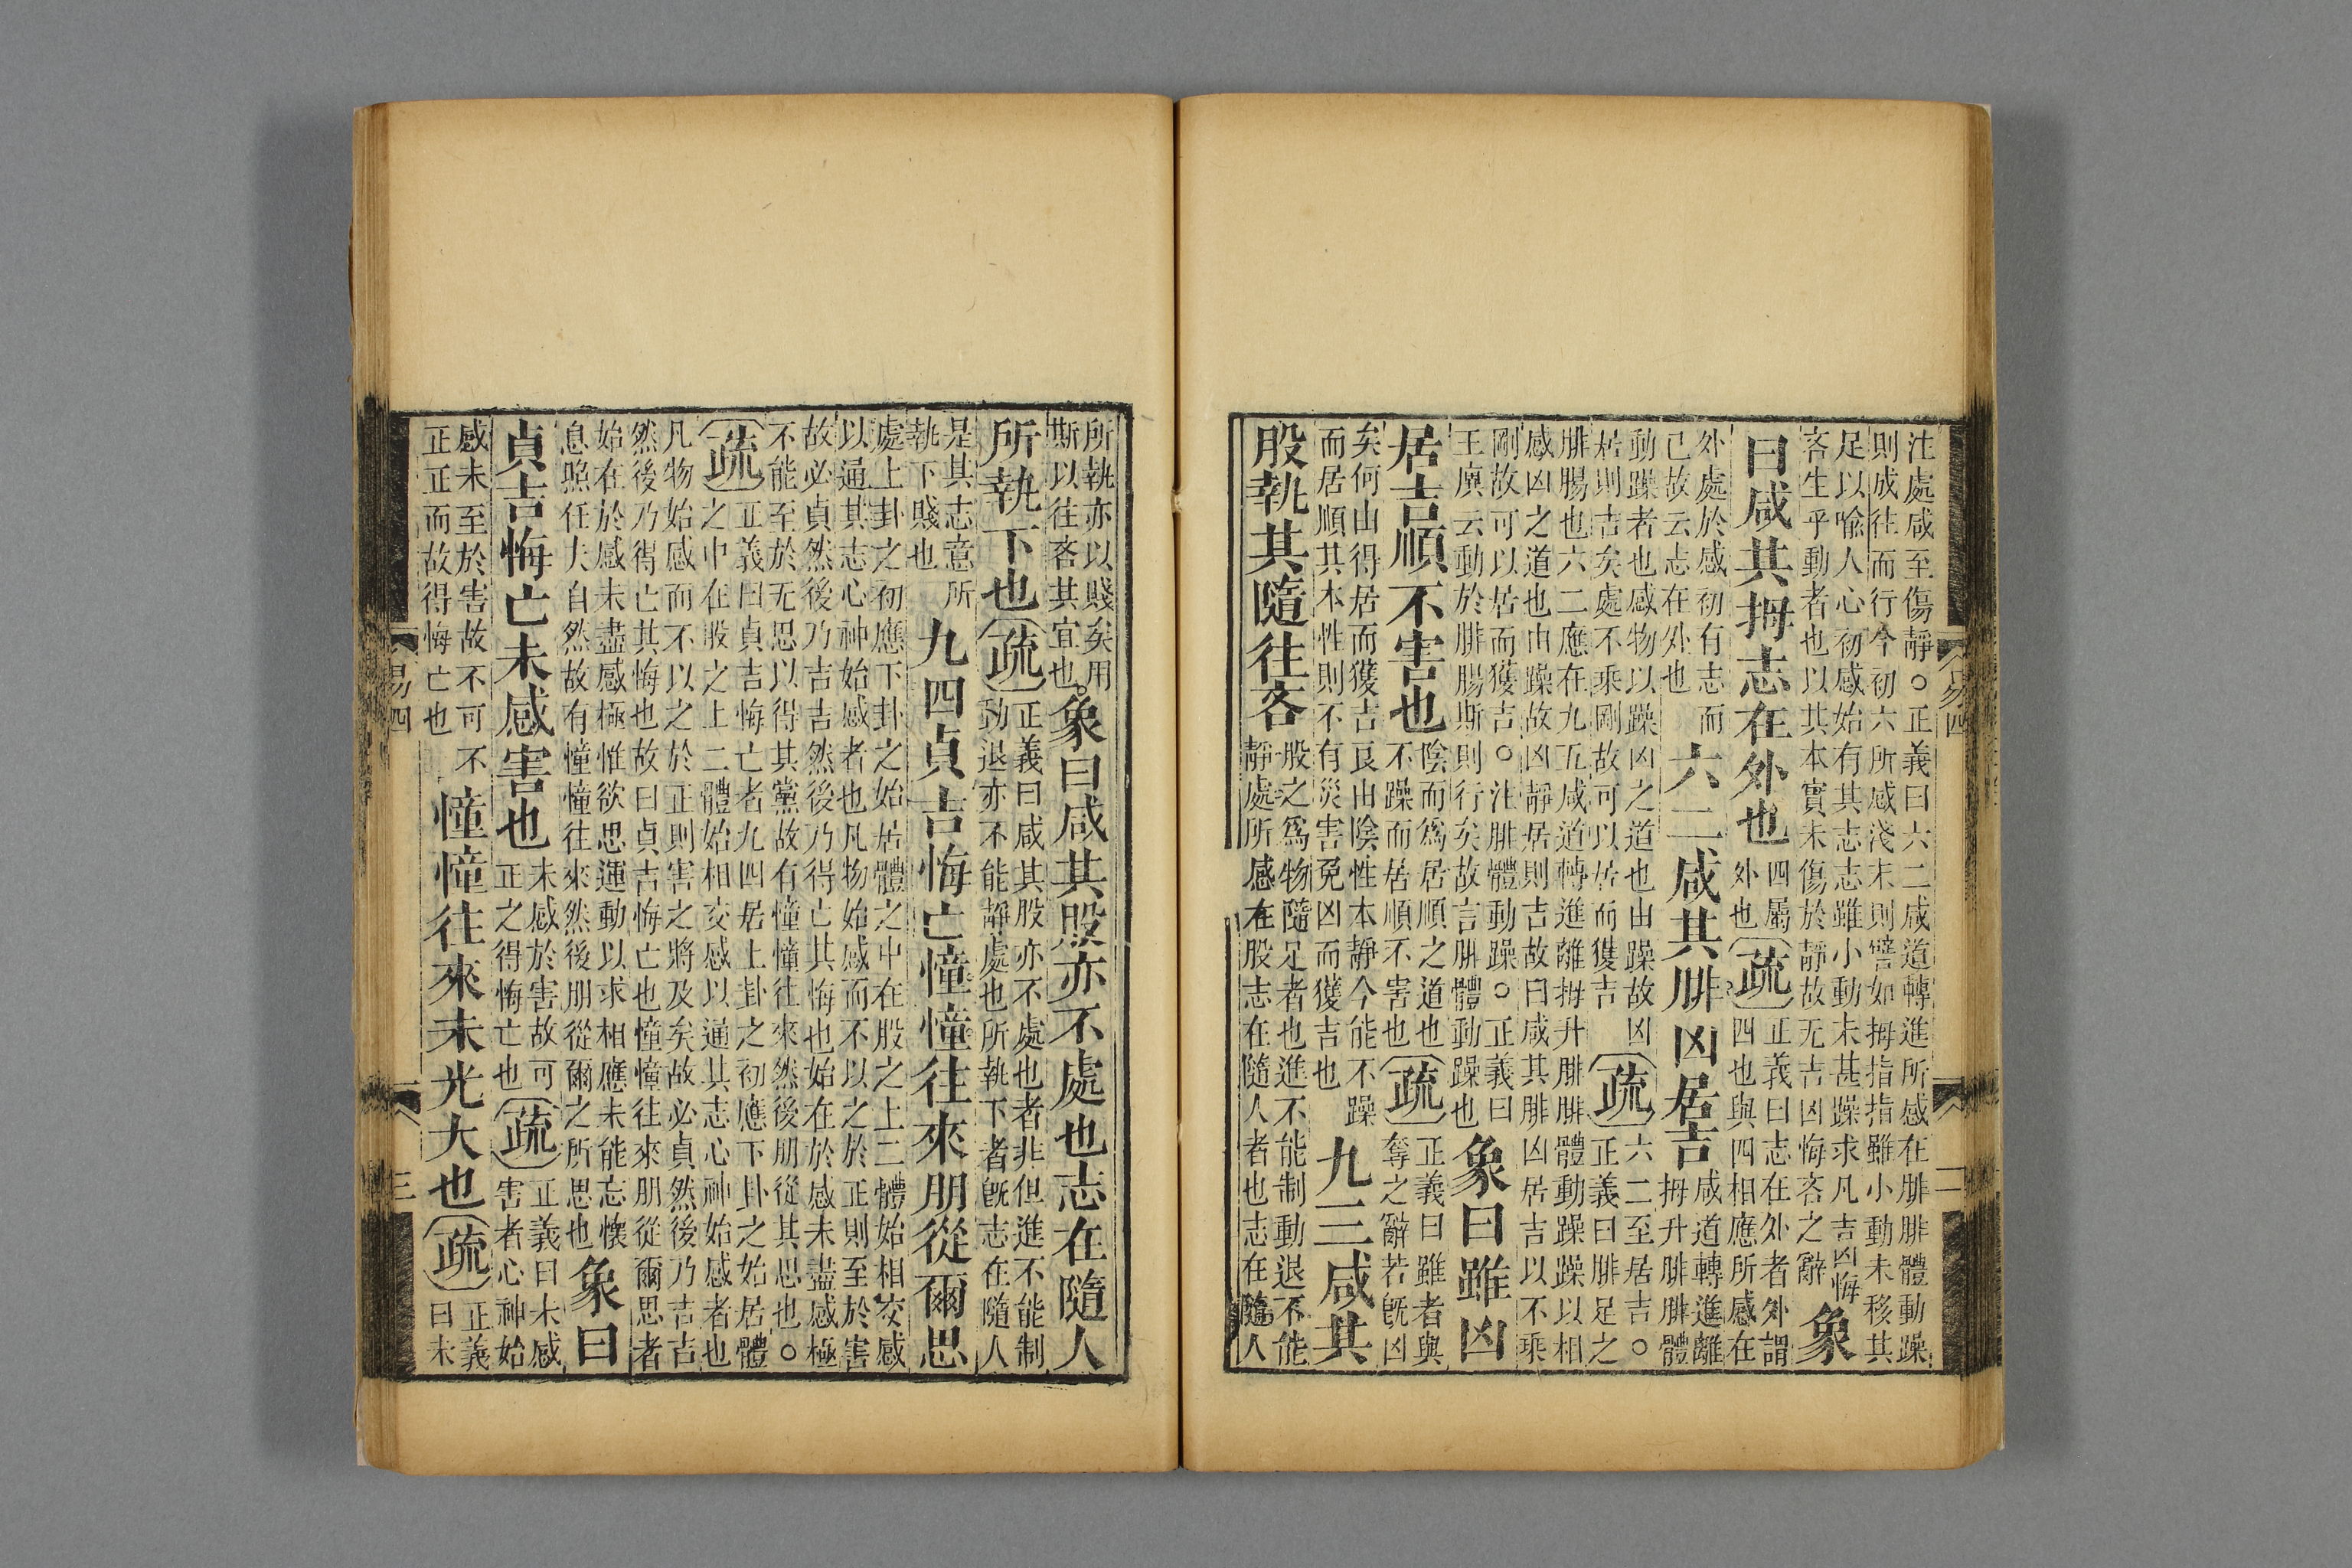 注處咸至傷靜○正義曰六二咸道轉進所感在腓腓體動躁
則成往而行今初六所感淺末則譬如拇指指雖小動未移其
足以喻人心初感始有其志志雖小動未甚躁求凡吉凶悔
吝生乎動者也以其本實未傷於靜故无吉凶悔吝之辭
象
曰咸其拇志在外也
四屬
外也
疏
正義曰志在外者外謂
四也與四相應所感在
外處於感初有志而
己故云志在外也
六二咸其腓凶居吉
咸道轉進離
拇升腓腓體
動躁者也感物以躁凶之道也由躁故凶
居則吉矣處不乘剛故可以居而獲吉
疏
六二至居吉○
正義曰腓足之
腓腸也六二應在九五咸道轉進離拇升腓腓體動躁躁以相
感凶之道也由躁故凶靜居則吉故曰咸其腓凶居吉以不乘
剛故可以居而獲吉○注腓體動躁○正義曰
王廙云動於腓腸斯則行矣故言腓體動躁也
象曰雖凶
居吉順不害也
陰而爲居順之道也
不躁而居順不害也
疏
正義曰雖者與
奪之辭若旣凶
矣何由得居而獲吉良由陰性本靜今能不躁
而居順其本性則不有災害免凶而獲吉也
九三咸其
股執其隨往吝
股之爲物隨足者也進不能制動退不能
靜處所感在股志在隨人者也志在隨人
所執亦以賤矣用
斯以往吝其宜也
象曰咸其股亦不處也志在隨人
所執下也
疏
正義曰咸其股亦不處也者非但進不能制
動退亦不能靜處也所執下者旣志在隨人
是其志意所
執下賤也
九四貞吉悔亡憧憧往來朋從爾思
處上卦之初應下卦之始居體之中在股之上二體始相交感
以通其志心神始感者也凡物始感而不以之於正則至於害
故必貞然後乃吉吉然後乃得亡其悔也始在於感未盡感極
不能至於无思以得其黨故有憧憧往來然後朋從其思也○
疏
正義曰貞吉悔亡者九四居上卦之初應下卦之始居體
之中在股之上二體始相交感以通其志心神始感者也
凡物始感而不以之於正則害之將及矣故必貞然後乃吉吉
然後乃得亡其悔也故曰貞吉悔亡也憧憧往來朋從爾思者
始在於感未盡感極惟欲思運動以求相應未能忘懷
息照任夫自然故有憧憧往來然後朋從爾之所思也
象曰
貞吉悔亡未感害也
未感於害故可
正之得悔亡也
疏
正義曰未感
害者心神始
感未至於害故不可不
正正而故得悔亡也
憧憧往來未光大也
疏
正義
曰未
易四
三